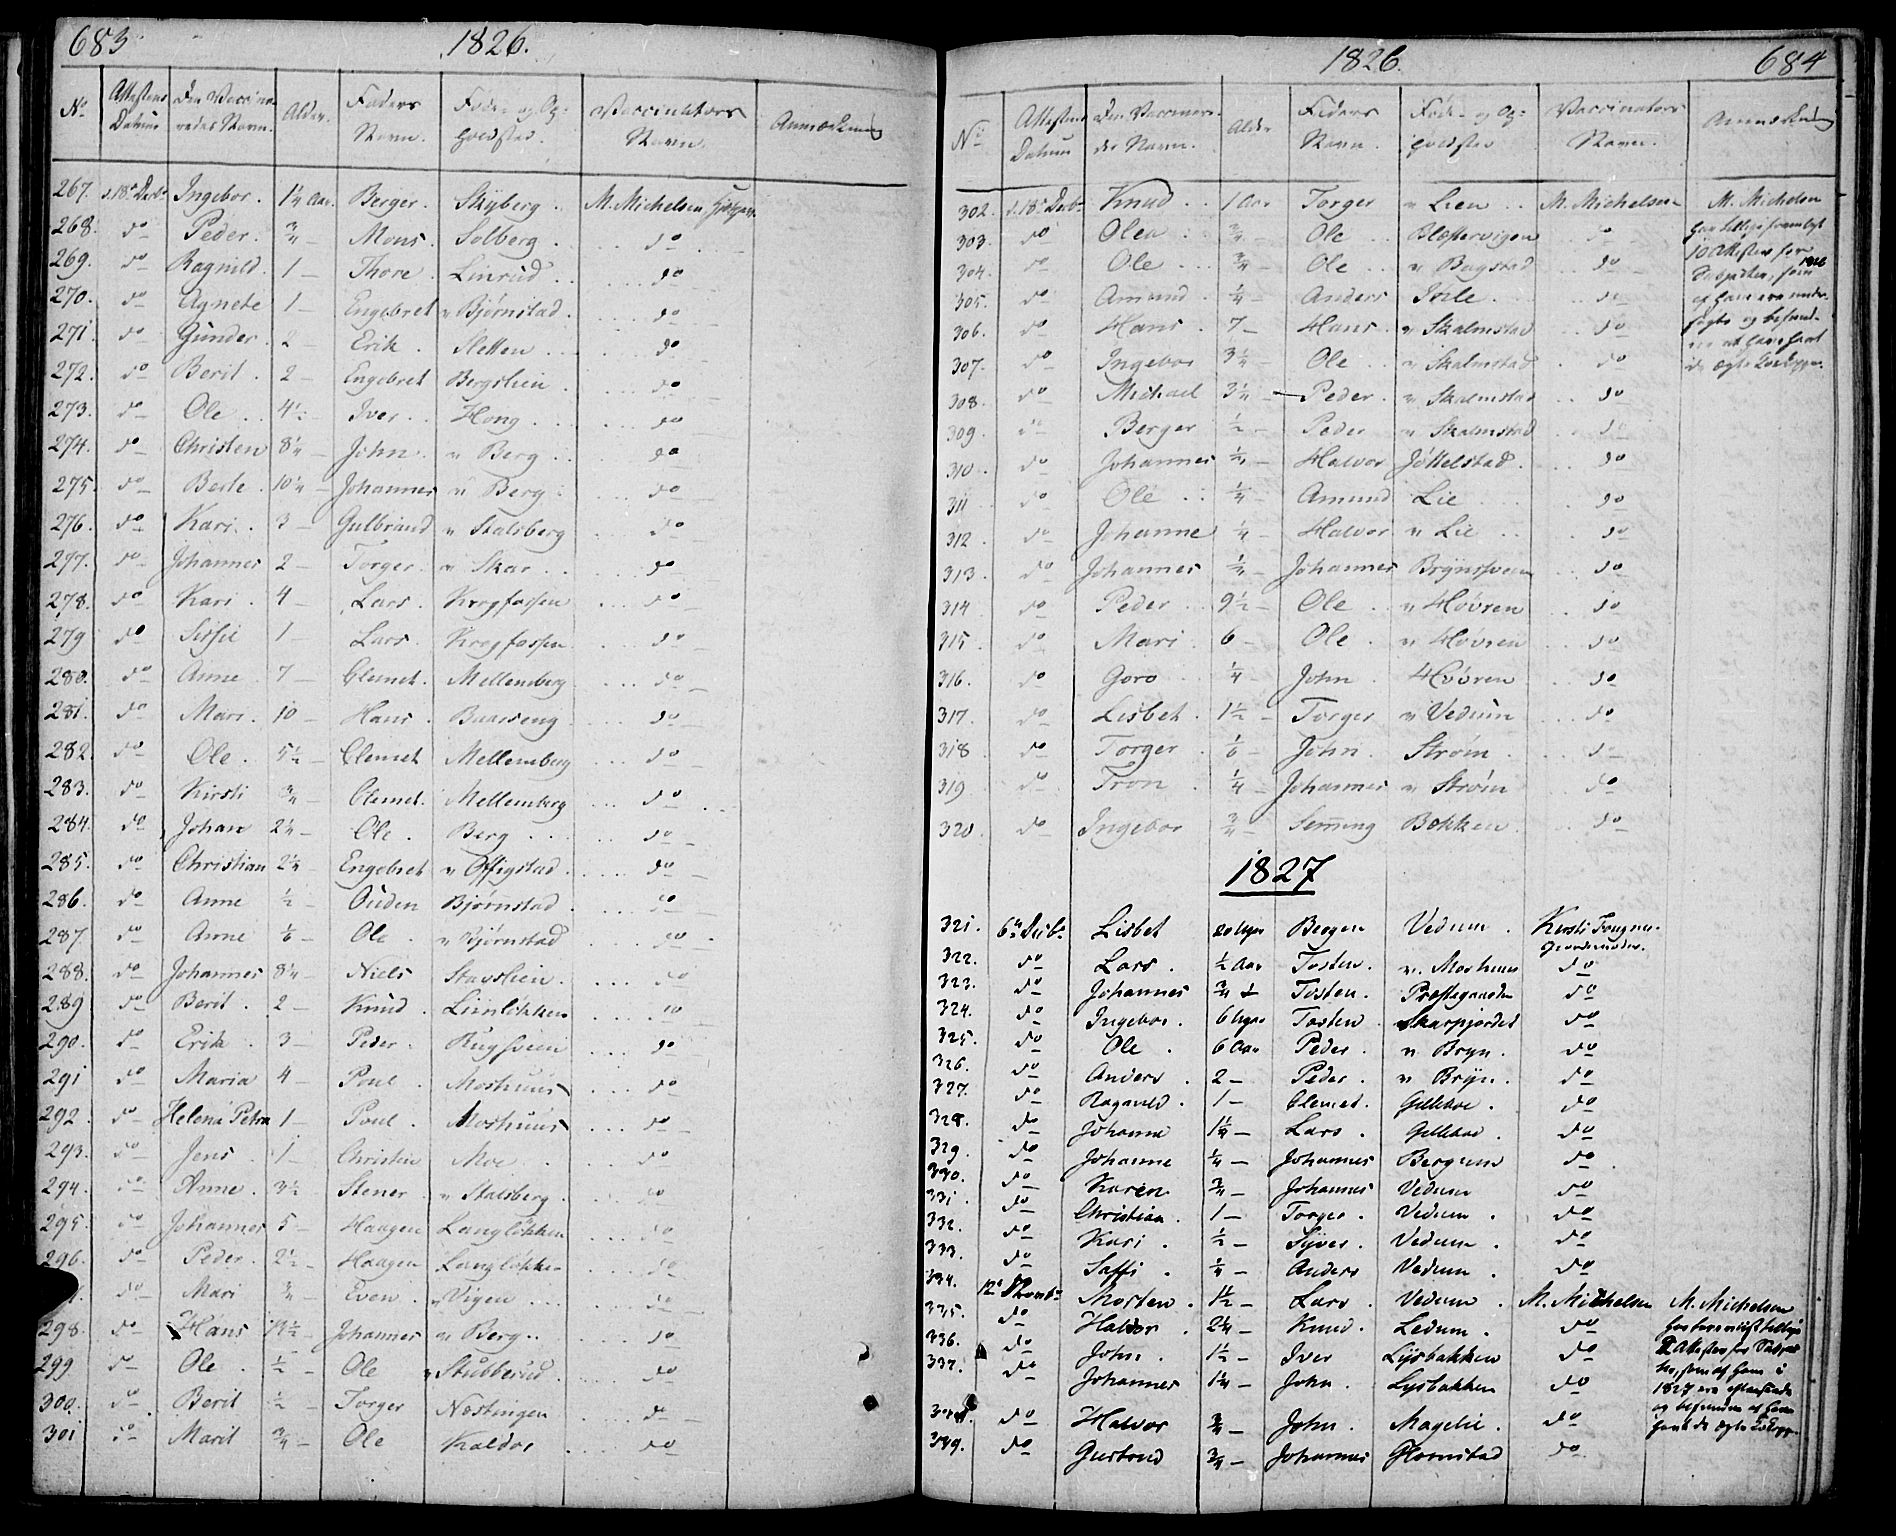 683 1826.
No Attestens Datum Den Vaccineredes Navn. Alder. Faders Navn. Føde- og Opholdsted. Vaccinators Navn. Anmærkning
267. d. 18de Decbr Ingebor. 1¼ Aar. Berger. Skyberg. M. Michelsen
268. do Peder. ¾ — Mons. Solberg. do
269. do Ragnild. 1 — Thore. Linrud. do
270. do Agnete 1 — Engebret n Bjørnstad. do
271. do Gunder. 2 — Erik. Sletten do
272. do Berit. 2 — Engebret Bergslien. do
273. do Ole. 4½ — Iver. Hong. do
274. do Christen 8¼ — John. n Berg. do
275. do Berte. 10¼ — Johannes n Berg. do
276. do Kari. 3 — Gulbrand n Stalsberg do
277. do Johannes 2 — Torger. n Skar. do
278. do Kari. 4 — Lars. Krogfossen do
279 do Sissel 1 — Lars. Krogfossen do
280. do Anne 7 — Clemet. Mellemberg do
281. do Mari. 10 — Hans. Baarseng do
282. do Ole. 5½ — Clemet Mellemberg do
283. do Kirsti ¾ — Clemet. Mellemberg do
284. do Johan 2¼ — Ole. Berg. do
285. do Christian 2¼ — Engebret n Offigstad. do
286. do Anne ½ — Ouden Bjørnstad. do
287. do Anne ⅙ — Ole. n Bjørnstad do
288. do Johannes 8¼ — Niels Stavslien. do
289 do Berit. 2 — Knud. Liinløkken do
290. do Erik. 3 — Peder. Rugsveen do
291 do Maria 4 — Poul. Moshuus do
292. do Helena Petra 1 — Poul. Moshuus do
293. do Jens. 1 — Christen Moe. do
294. do Anne. 3½ — Stener. n Stalsberg. do
295. do Johannes 5 — Haagen Langløkken do
296. do Peder. 2½ — Haagen Langløkken do
do Mari ¾ — Even. n Vigen do
298. do Hans ½ — Johannes n Berg. do
299 do Ole. ½ — Ole n Stubberud. do
300. do Berit ½ — Torger Nostingen do
301 do Marit ¾ — Ole Kaldor do
1826. 684
No Attestens Datum Den Vaccinerede Navn. Alder Faders Navn. Føde- og Opholdsted Vaccinators Navn. Anmærkning
302. d. 18de Decbr Knud. 1 Aar Torger n Lien M. Michelsen M. Michelsen
303. do Olea ¾ — Ole Blæstervigen do
304. do Ole ¾ — Ole n Bagstad do
305. do Amund ¼ — Anders do
306. do Hans 7 — Hans. n Skalmstad do
307. do Ingebor 3¼ — Ole n Skalmstad do
308. do Michael 3¼ — Peder. n Skalmstad do
309. do Berger ½ — Peder n Skalmstad do
310. do Johannes ¼ — Halvor Jøttelstad. do
311 do Ole ¼ — Amund Lie do
312 do Johanne ¼ — Halvor n Lie do
313. do Johannes ¼ — Johannes Brynsveen do
314 do Peder 9½ — Ole. n Høvren do
315. do Mari 6 — Ole. n Høvren do
316. do Goro ¼ John Høvren do
317. do Lisbet. 1½ — Torger n Vedum do
318 do Torger. ⅙ — John. Strøm. do
319 do Tron ¼ — Johannes n Strøm do
320. do Ingebor ¾ — Semming Bakken. do
1827
321. 6te Lisbet Bergen Vedum. Kirsti Fougner
322. do Lars. ½ Aar Tosten. n. Moshuus do
323. do Johannes ¾ Tosten. Præstegaarden do
324. do Ingebor. Tosten. do
325. do Ole. 6 Aar Peder. n Bryn. do
326. do Anders. 2 — Peder. n Bryn. do
327. do Ragnild. 1 — Clemet. Gilleboe. do
328. do Johanne 1¼ — Lars. Gilleboe. do
329. do Johanne ¼ — Johannes Bergum do
330. do Karen ¾ — Johannes Vedum do
331. do Christian. 1 — Torger. Vedum. do
332. do Kari. ½ — Syver. Vedum. do
333. do Saffi. ¼ — Anders Vedum. do
334. 12te Morten. 1½ — Lars. Vedum. M. Michelsen M. Michelsen
335. do Halvor. 2¼ — Knud. Ledum. do
336. do John. 1½ — Iver Lysbakken do
337. do Johannes 1¼ — John. Lysbakken do
338. do Halvor ¾ — John. Magelie. do
339. do Gustond ¾ — Johannes Glomstad do